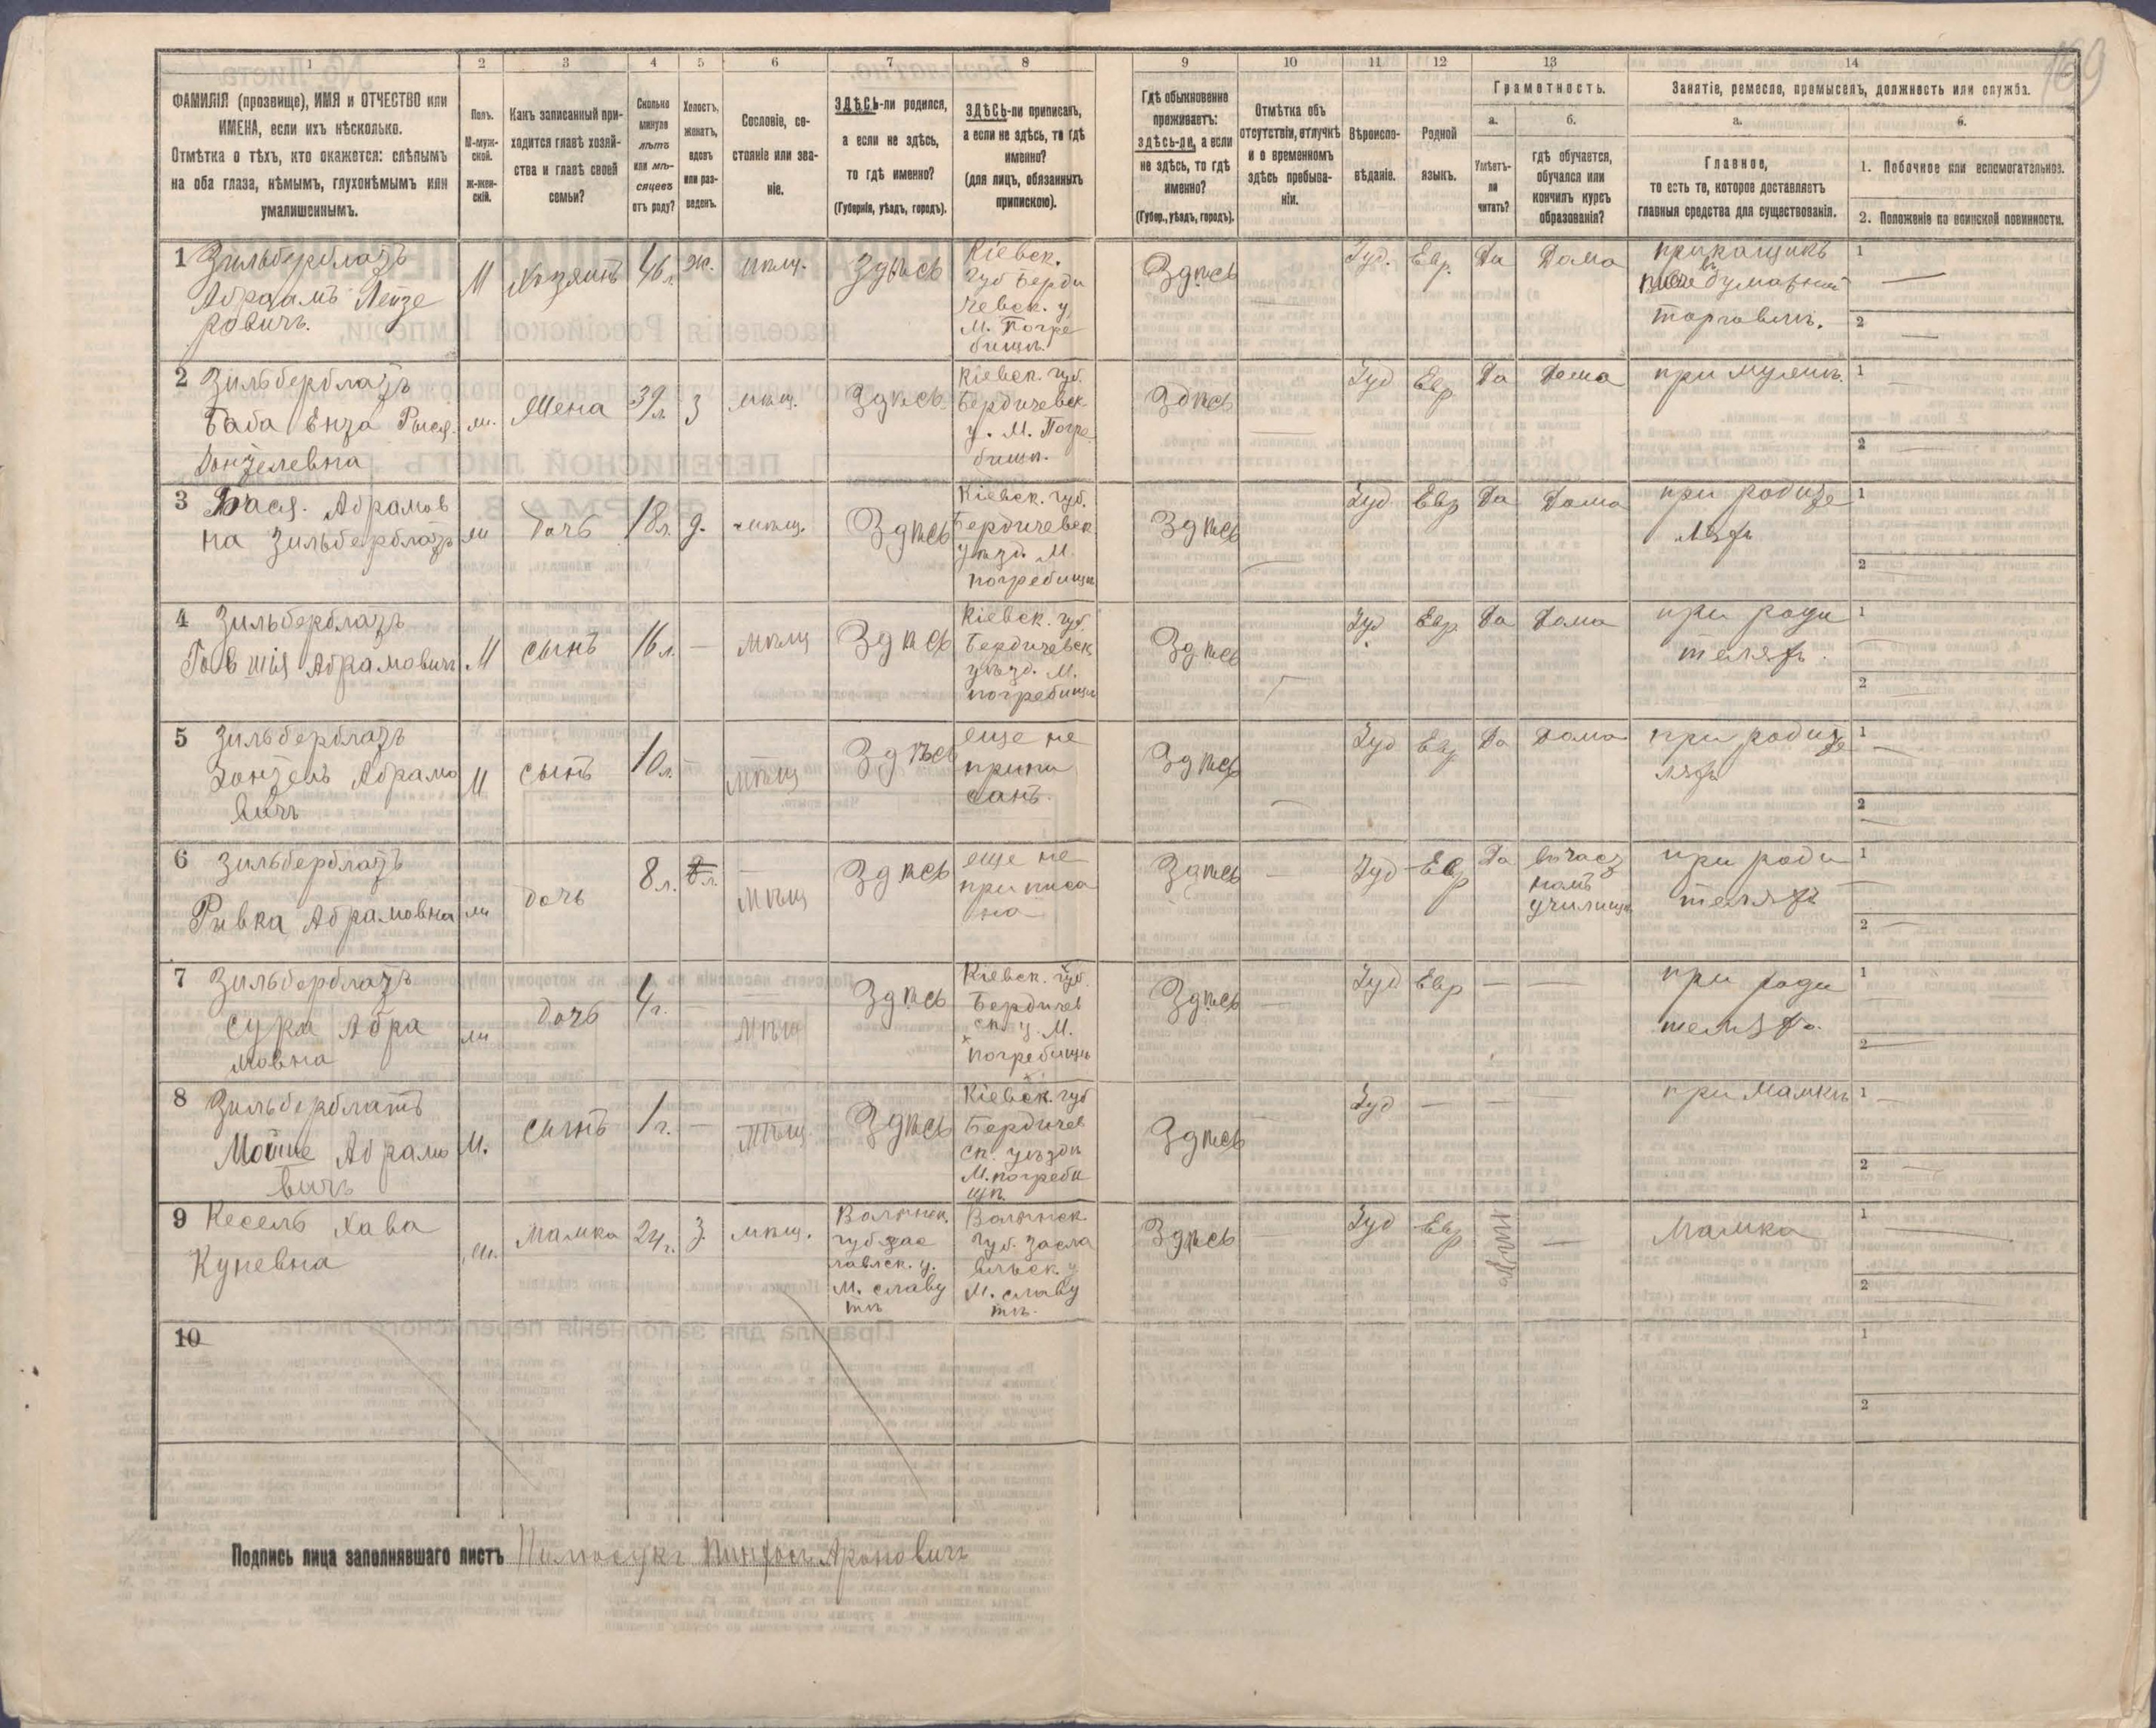 169
1 2 3 4 5 6 7 8 9 10 11 12 13 14
ФАМИЛІЯ (прозвище), ИМЯ и ОТЧЕСТВО или
ИМЕНА, если ихъ нѣсколько.
Отмѣтка о тѣхъ, кто окажется: слѣпымъ
на оба глаза, нѣмымъ, глухонѣмымъ или
умалишеннымъ.
Полъ.
М-муж-
ской.
Ж-жен-
скій.
Какъ записанный при-
ходится главѣ хозяй-
ства и главѣ своей
семьи?
Сколько
минуло
лѣтъ
или мѣ-
сяцевъ
отъ роду?
Холостъ,
женатъ,
вдовъ
или раз-
веденъ.
Сословіе, со-
стояніе или зва-
ніе.
ЗДѢСЬ-ли родился,
а если не здѣсь,
то гдѣ именно?
(Губернія, уѣздъ, городъ).
ЗДѢСЬ-ли приписанъ,
а если не здѣсь, то гдѣ
именно?
(для лицъ, обязанныхъ
припискою).
Гдѣ обыкновенно
проживаетъ:
здѣсь-ли, а если
не здѣсь, то гдѣ
именно?
(Губер., уѣздъ, городъ).
Отмѣтка объ
отсутствіи, отлучкѣ
и о временномъ
здѣсь пребыва-
ніи.
Вѣроиспо-
вѣданіе.
Родной
языкъ.
Грамотность.
а.
Умѣетъ-
ли
читать?
б.
гдѣ обучается,
обучался или
кончилъ курсъ
образованія?
Занятіе, ремесло, промыселъ, должность или служба.
а.
Главное,
то есть то, которое доставляетъ
главныя средства для существованія.
б.
1. Побочное или вспомогательное.
2. Положеніе по воинской повинности.
1 Зильберблатъ
Абраамъ Лейзе
ровичъ.
М
Хозяинъ
46 л.
ж.
мѣщ.
Здѣсь
Кіевск.
губ Берди
чевск. у,
М. Погре
бищѣ.
Здѣсь
Іуд.
Евр.
Да
Дома
прикащикъ
въ
бумажной
торговлѣ.
1 —
2 —
2 Зильберблатъ
Баба Рыся
ж.
Жена
39 л.
з
мѣщ.
Здѣсь.
Кіевск. губ.
Бердичевск
у. М. Погре
бищѣ.
Здѣсь
Іуд
Евр
Да
Дома
при мужѣ.
1 —
2 —
3 Бася. Абрамов
на Зильберблатъ
ж
Дочь
18 л.
д.
мѣщ.
Здѣсь
Кіевск. губ.
Бердичевск
уѣзд. М.
погребищѣ
Здѣсь
—
Іуд
Евр
Да
Дома
при родите
ляхъ
1 —
2 —
4 Зильберблатъ
Абрамовичъ
М
сынъ
16 л.
—
мѣщ
Здѣсь
Кіевск. губ
Бердичевск
уѣзд. М.
погребищѣ
Здѣсь
—
Іуд
Евр
Да
Дома
при роди
теляхъ.
1 —
2 —
5 Зильберблатъ
Абрамо
вичъ
М
сынъ
10 л.
—
мѣщ
Здѣсь
еще не
припи
санъ.
Здѣсь
—
Іуд
Евр
Да
Дома
при родите
ляхъ
1 —
2 —
6 Зильберблатъ
Ривка Абрамовна
ж
Дочь
8 л.
8 л.
—
мѣщ
Здѣсь
еще не
приписа
на
Здѣсь
—
Іуд
Евр
Да
въ част
номъ
училищѣ
при роди
теляхъ
1 —
2 —
7 Зильберблатъ
Сура Абра
мовна
ж
Дочь
4 г.
—
мѣщ
Здѣсь
Кіевск. губ.
Бердичев
ск у. М.
погребищѣ
Здѣсь
—
Іуд
Евр
—
—
при роди
теляхъ.
1 —
2 —
8 Зильберблатъ
Мойше Абрамо
вичъ
М.
сынъ
1 г.
—
мѣщ
Здѣсь
Кіевск. губ
Бердичев
ск. уѣзда
М. погреби
щѣ.
Здѣсь
—
Іуд
—
—
—
при Мамкѣ
1 —
2 —
9 Кесель Хава
Куневна
ж.
Мамка
24 г.
з.
мѣщ.
Волынск.
губ Зас
лавск. у.
М. славу
тѣ
Волынск.
губ. Засла
вльск. у
М. славу
тѣ.
Здѣсь
—
Іуд
Евр
нѣтъ
—
Мамка
1 —
2 —
10
1
2
Подпись лица заполнявшаго листъ Пинхосъ Ароновичъ